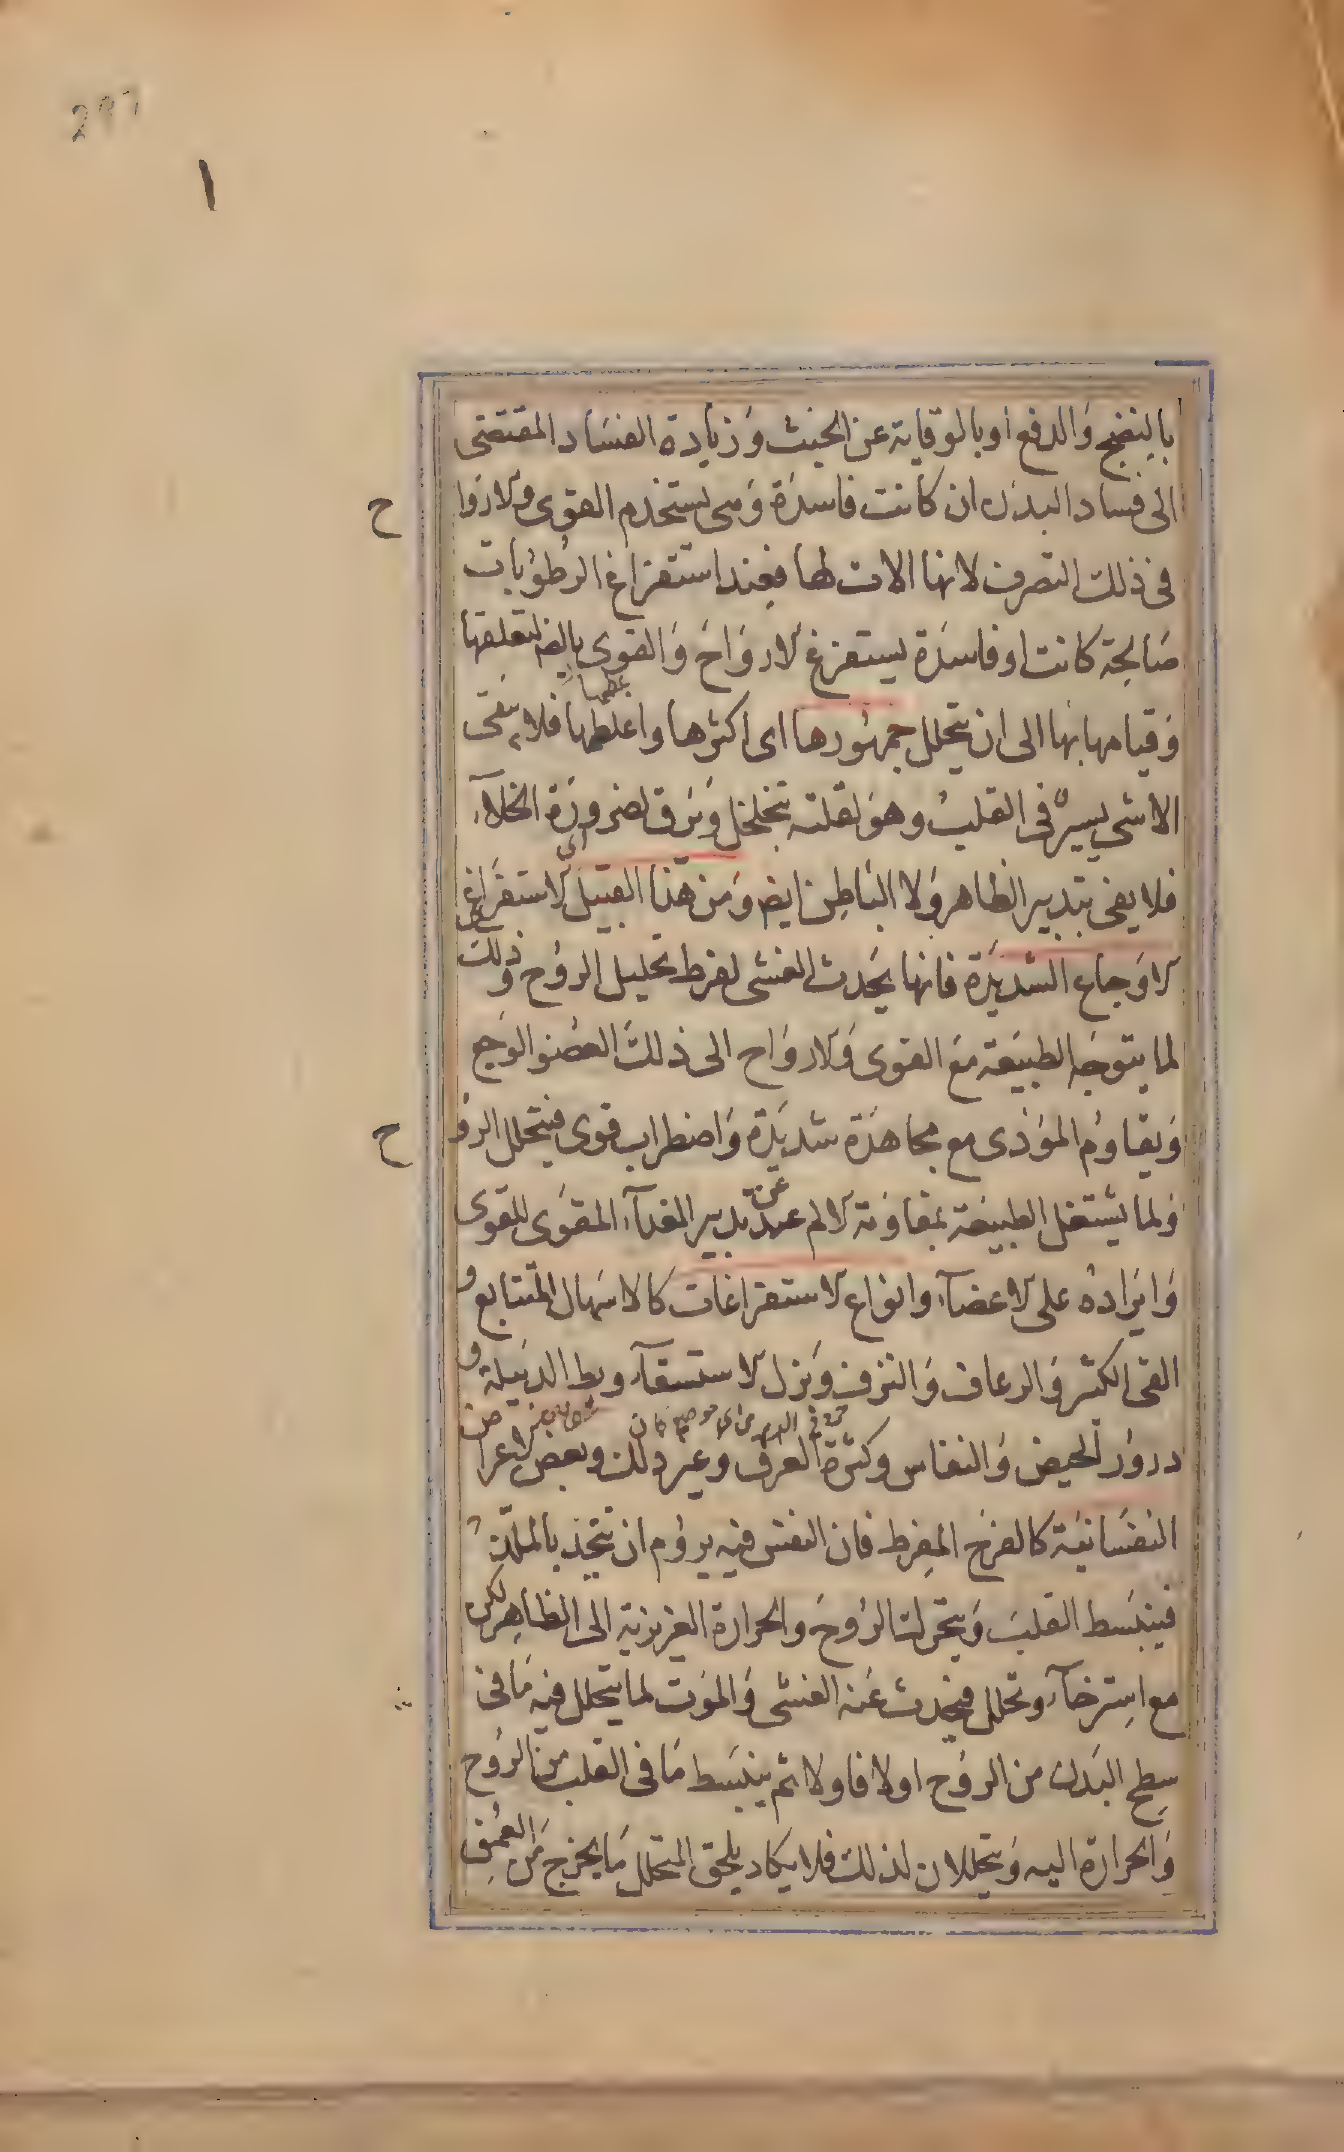 297
١
بالنضج والدفع او بالوقاية عن الخبث وزيادة الفساد المقتضى
الى فساد البدن ان كانت فاسدة وهى يستخدم القوى والاروا
ح
فى ذلك التصرف لانها الات لها فعند استفراغ الرطوبات
صالحة كانت او فاسدة يستفرغ الارواح والقوى بالضر لتعلقها
وقيامها بها الى ان يتحلل جمهورها اى اكثرها واعظمها فلا يبقى
الا شى يسير فى القلب وهو لقلته يتخلخل ويرق لضرورة الخلاء
فلا يفى بتدبير الظاهر ولا الباطن ايض ومن هذا القبيل اى الاستفراغ
الاوجاع الشديدة فانها يحدث الغشى لفرط تحليل الروح وذلك
لما يتوجه الطبيعة مع القوى والارواح الى ذلك العضو الوجع
ويقاوم الموذى مع مجاهدة شديدة واضطراب قوى فيتحلل الرو
ح
ولما يشتغل الطبيعة بمقاومة الالم عن تدبير الغذاء المقوى للقوى
وايراده على الاعضاء وانواع الاستفراغات كالاسهال المتتابع و
القى الكثير والرعاف والنزف وبزل الاستسقاء وبط الدبيلة و
درور الحيض والنفاس وكثرة العرق وغير ذلك وبعض الاعراض
النفسانية كالفرح المفرط فان النفس فيه يروم ان يتحد بالملذ
فينبسط القلب ويتحرك الروح والحرارة الغريزية الى الظاهر لكن
مع استرخاء وتحلل فيحدث عنه الغشى والموت لما يتحلل فيه ما فى
سطح البدن من الروح اولا فاولا ثم ينبسط ما فى القلب من الروح
والحرارة اليه ويتحللان لذلك فلا يكاد يلحق المتحلل ما يخرج من العمق